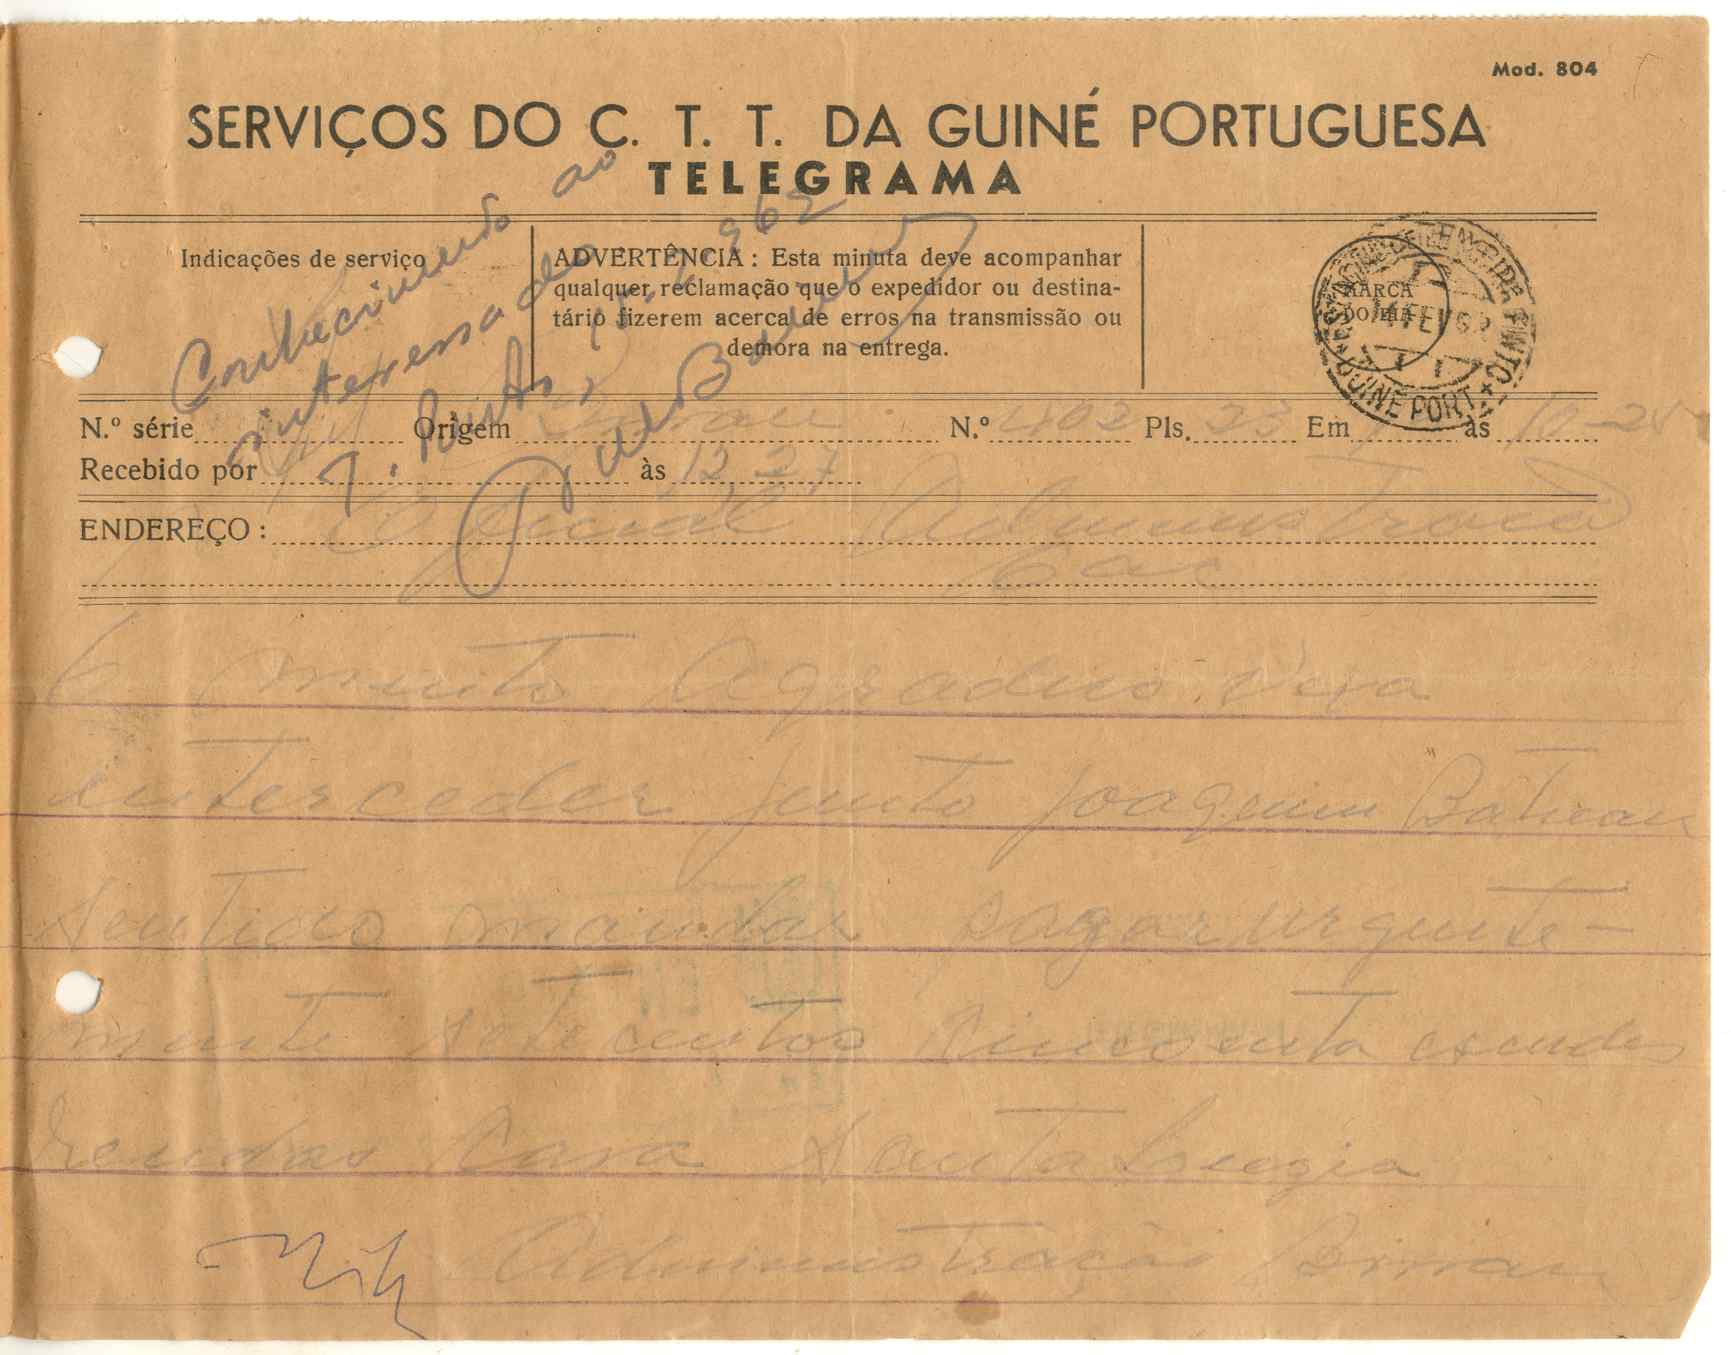 Mod. 804
SERVIÇOS DO C. T. T. DA GUINÉ PORTUGUESA
TELEGRAMA
Indicações de serviço
ADVERTÊNCIA : Esta minuta deve acompanhar
qualquer reclamação que o expedidor ou destina-
tário fizerem acerca de erros na transmissão ou
demora na entrega.
MARCA
DO DIA
14 FEV 62
GUINÉ PORT.
Conhecimento ao
interessado
962
N.º série Origem Bissau N.º 1802 Pls. 23 Em às 10-25
Recebido por às 12 27
ENDEREÇO : Oficial Administração
6 muito agradeço. Seja
interceder junto Joaquim
sentido mandar pagar urgente-
mente setecentos cincoenta escudos
rendas casa Santa Luzia
Administração Bissau